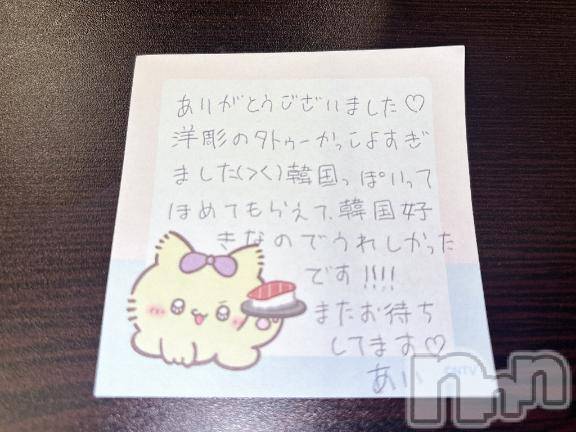 ありがとうございました♡
洋彫のタトゥーかっこよすぎ
ました(>く)韓国っぽいって
ほめてもらえて、韓国好
きなのでうれしかった
です!!!!
またお待ち
してます♡
あい
©NTV